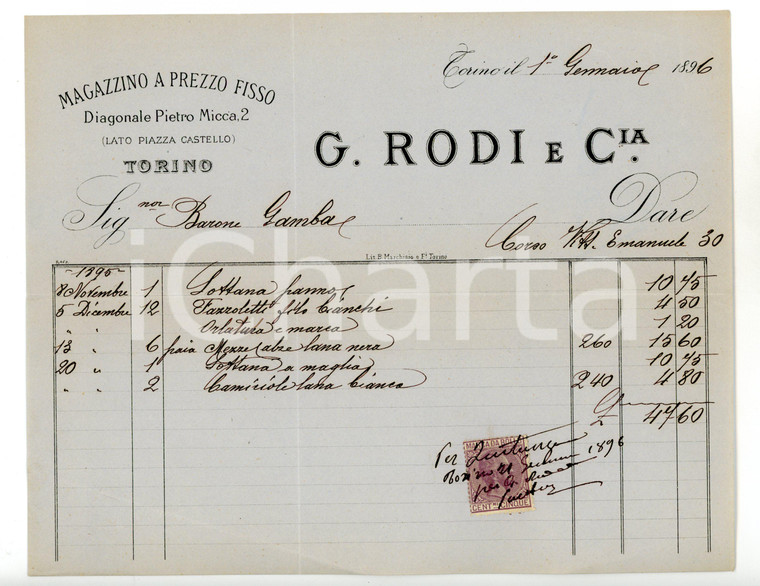 Torino il 1° Gennaio 1896
MAGAZZINO A PREZZO FISSO
Diagonale Pietro Micca, 2
(LATO PIAZZA CASTELLO)
TORINO
G. RODI E CIA.
Dare
Sig nor Barone Gamba
Corso Vitt. Emanuele 30
Lit. B. Marchisio e Fi. Torino
- 1895 -
8 Novembre 1 Sottana panno 10 45
5 Dicembre 12 Fazzoletti filo bianchi 4 50
" " Orlatura e marca 1 20
13 " 6 paia Mezze calze lana nera 260 15 60
20 " 1 Sottana a maglia 10 45
" " 2 Camiciole lana bianca 240 4 80
£ 47 60
iCharta
MARCA DA BOLLO
Per Quitanza
Torino 21 Gennaio 1896
per
CENT. CINQUE